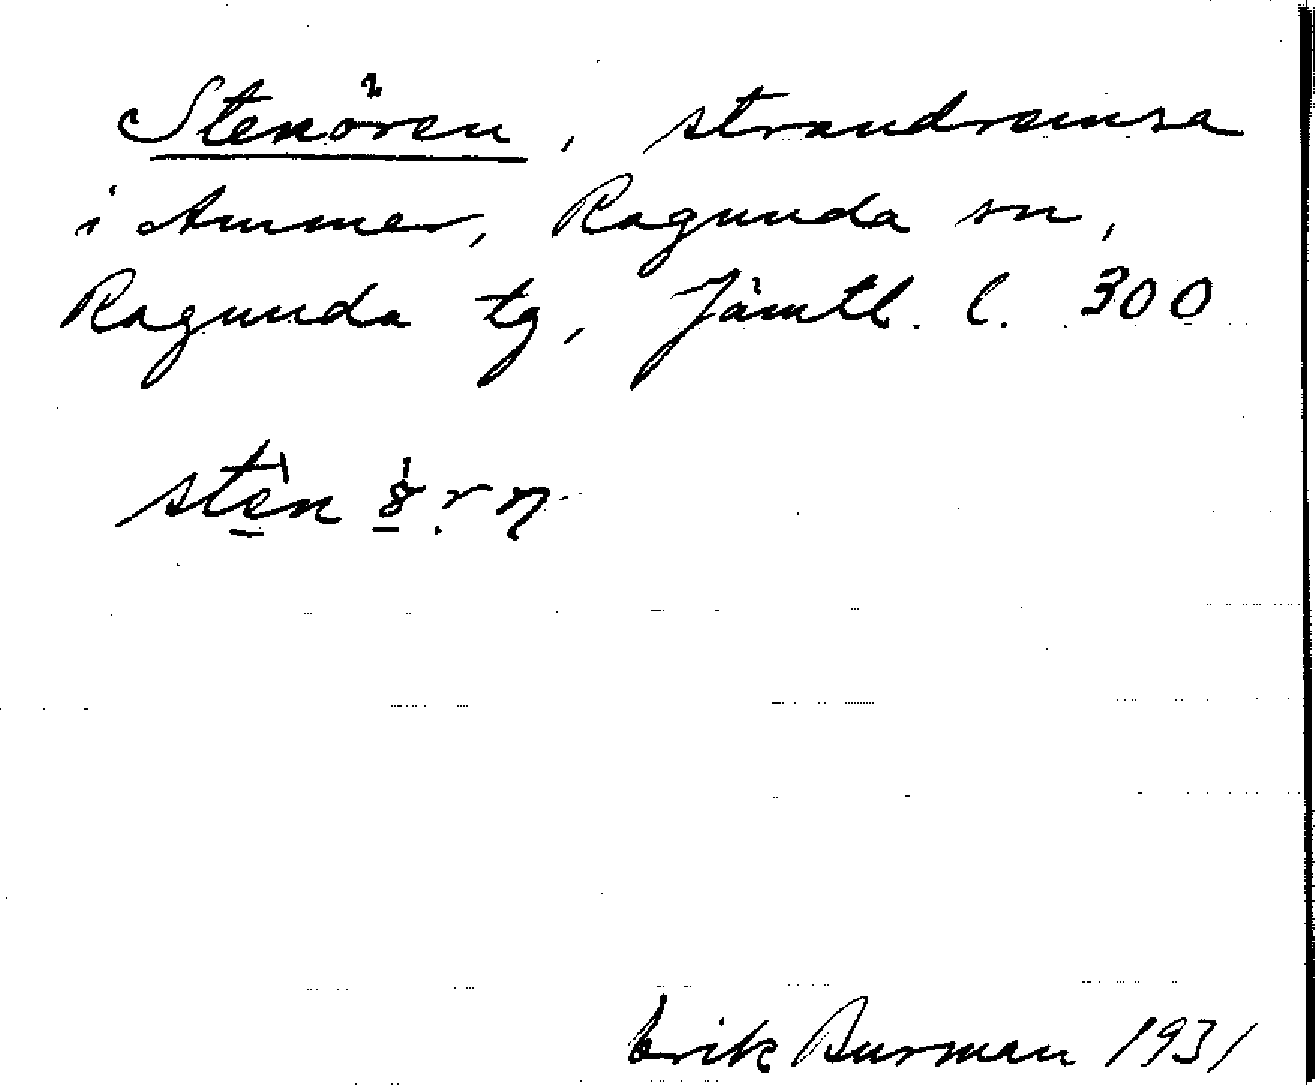 Stenören, strandremsa
i Ammer, Ragunda sn,
Ragunda tg, Jämtl. l. 300
Erik Burman 1931